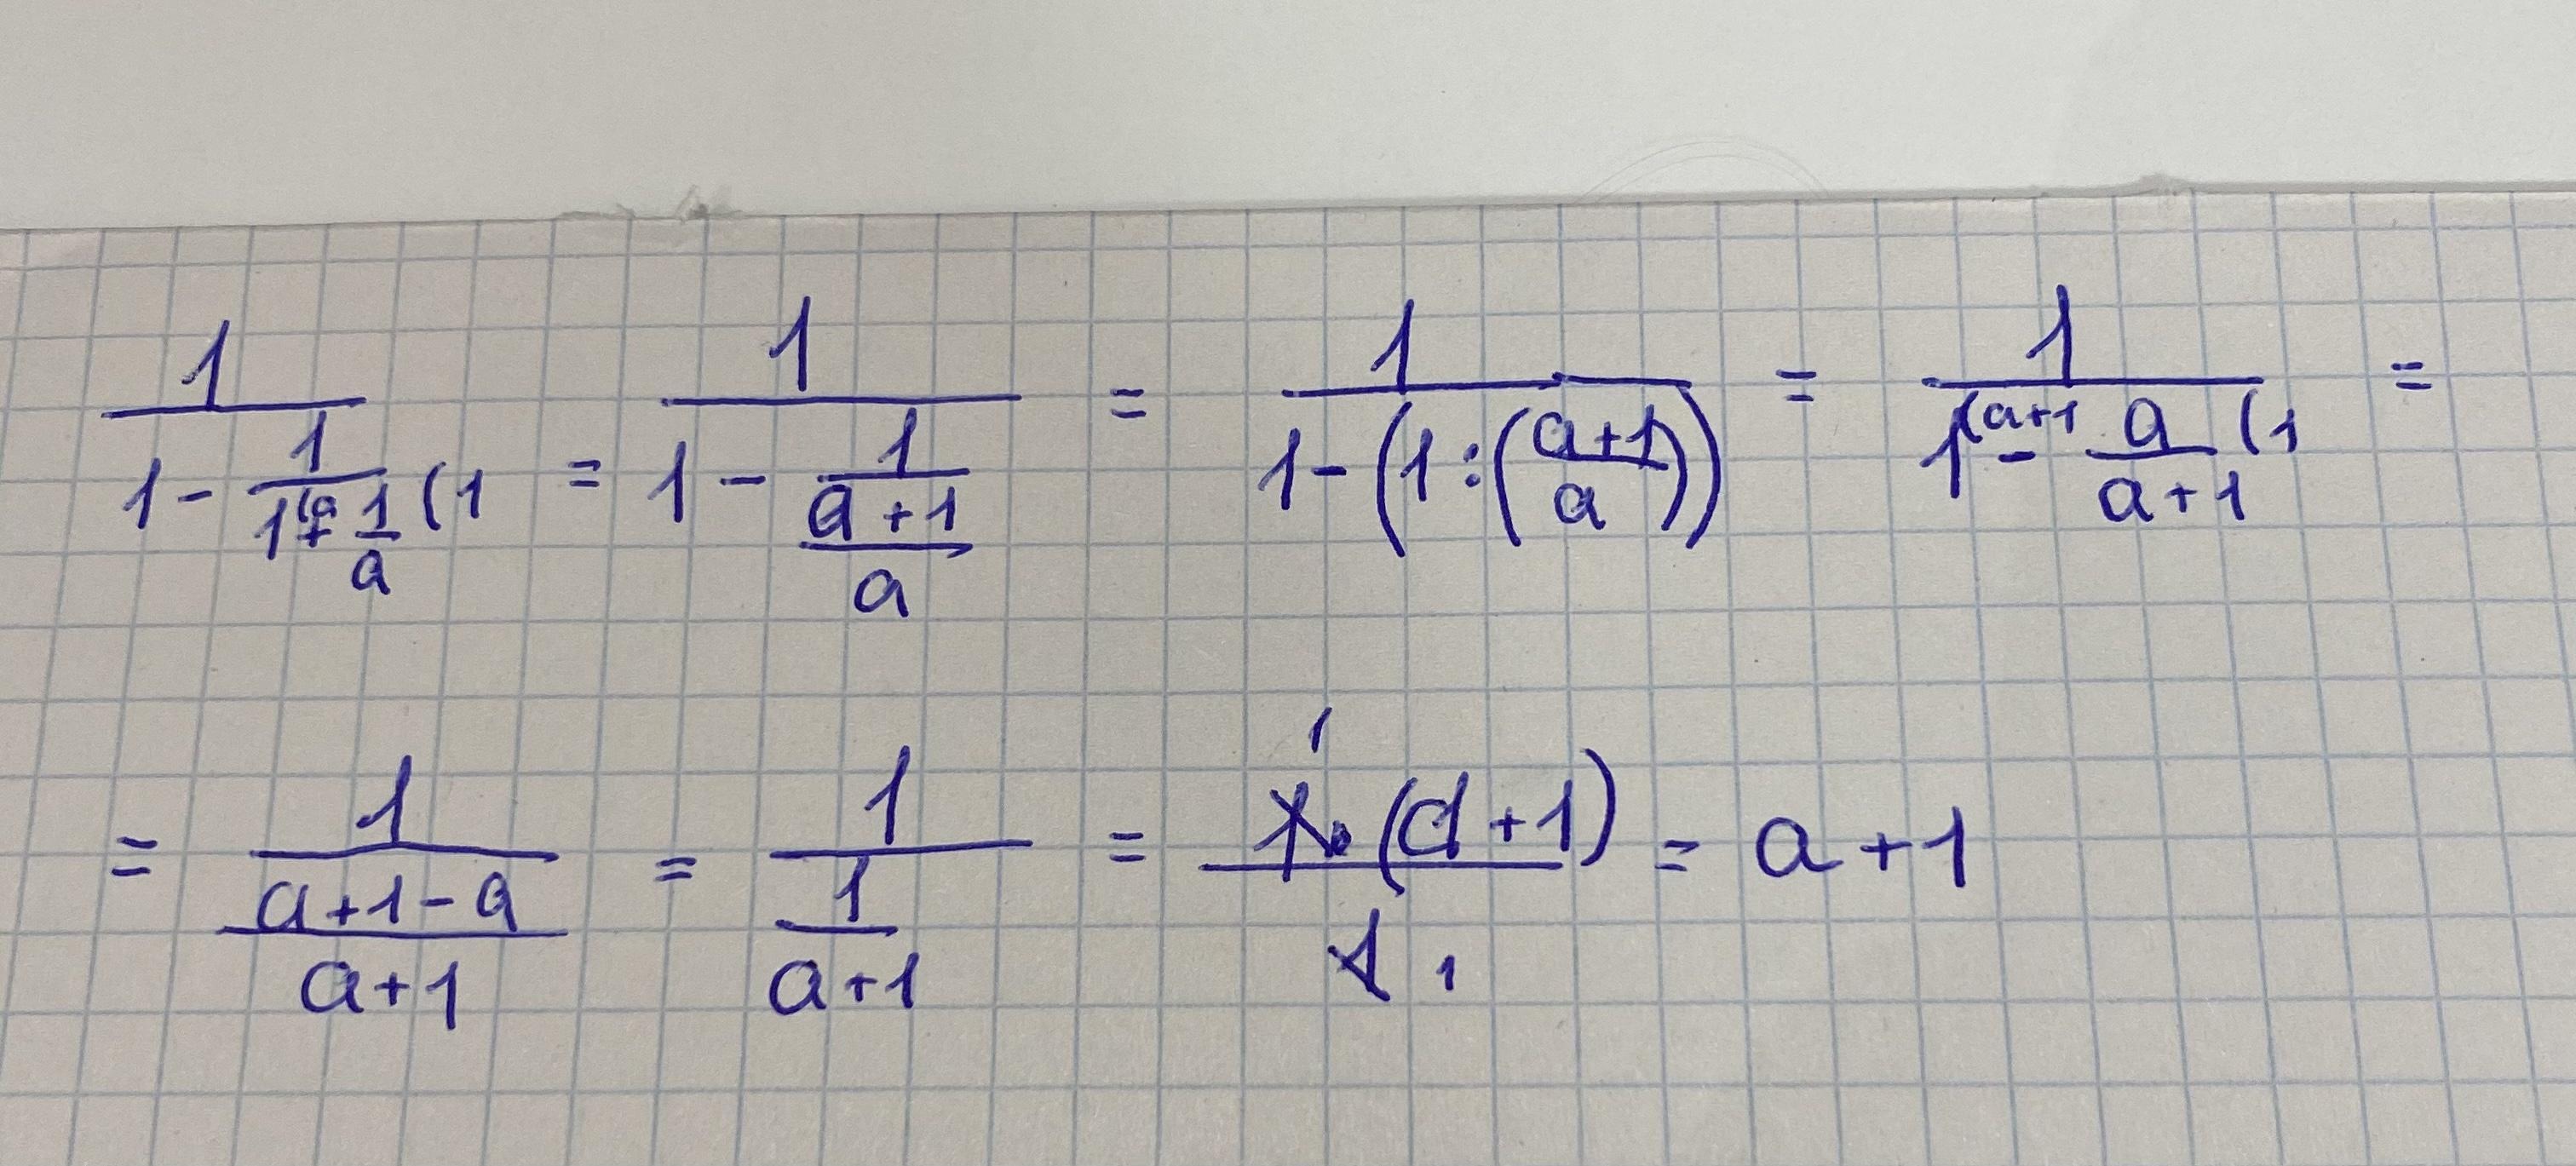 \frac{1}{1 - \frac{1}{1^{(a} + \frac{1}{a}^{(1}}} = \frac{1}{1 - \frac{1}{\frac{a+1}{a}}} = \frac{1}{1 - (1 : (\frac{a+1}{a}))} = \frac{1}{1^{(a+1} - \frac{a}{a+1}^{(1}} =
= \frac{1}{\frac{a+1-a}{a+1}} = \frac{1}{\frac{1}{a+1}} = \frac{\cancel{1}^{1} \cdot (a+1)}{\cancel{1}_{1}} = a+1